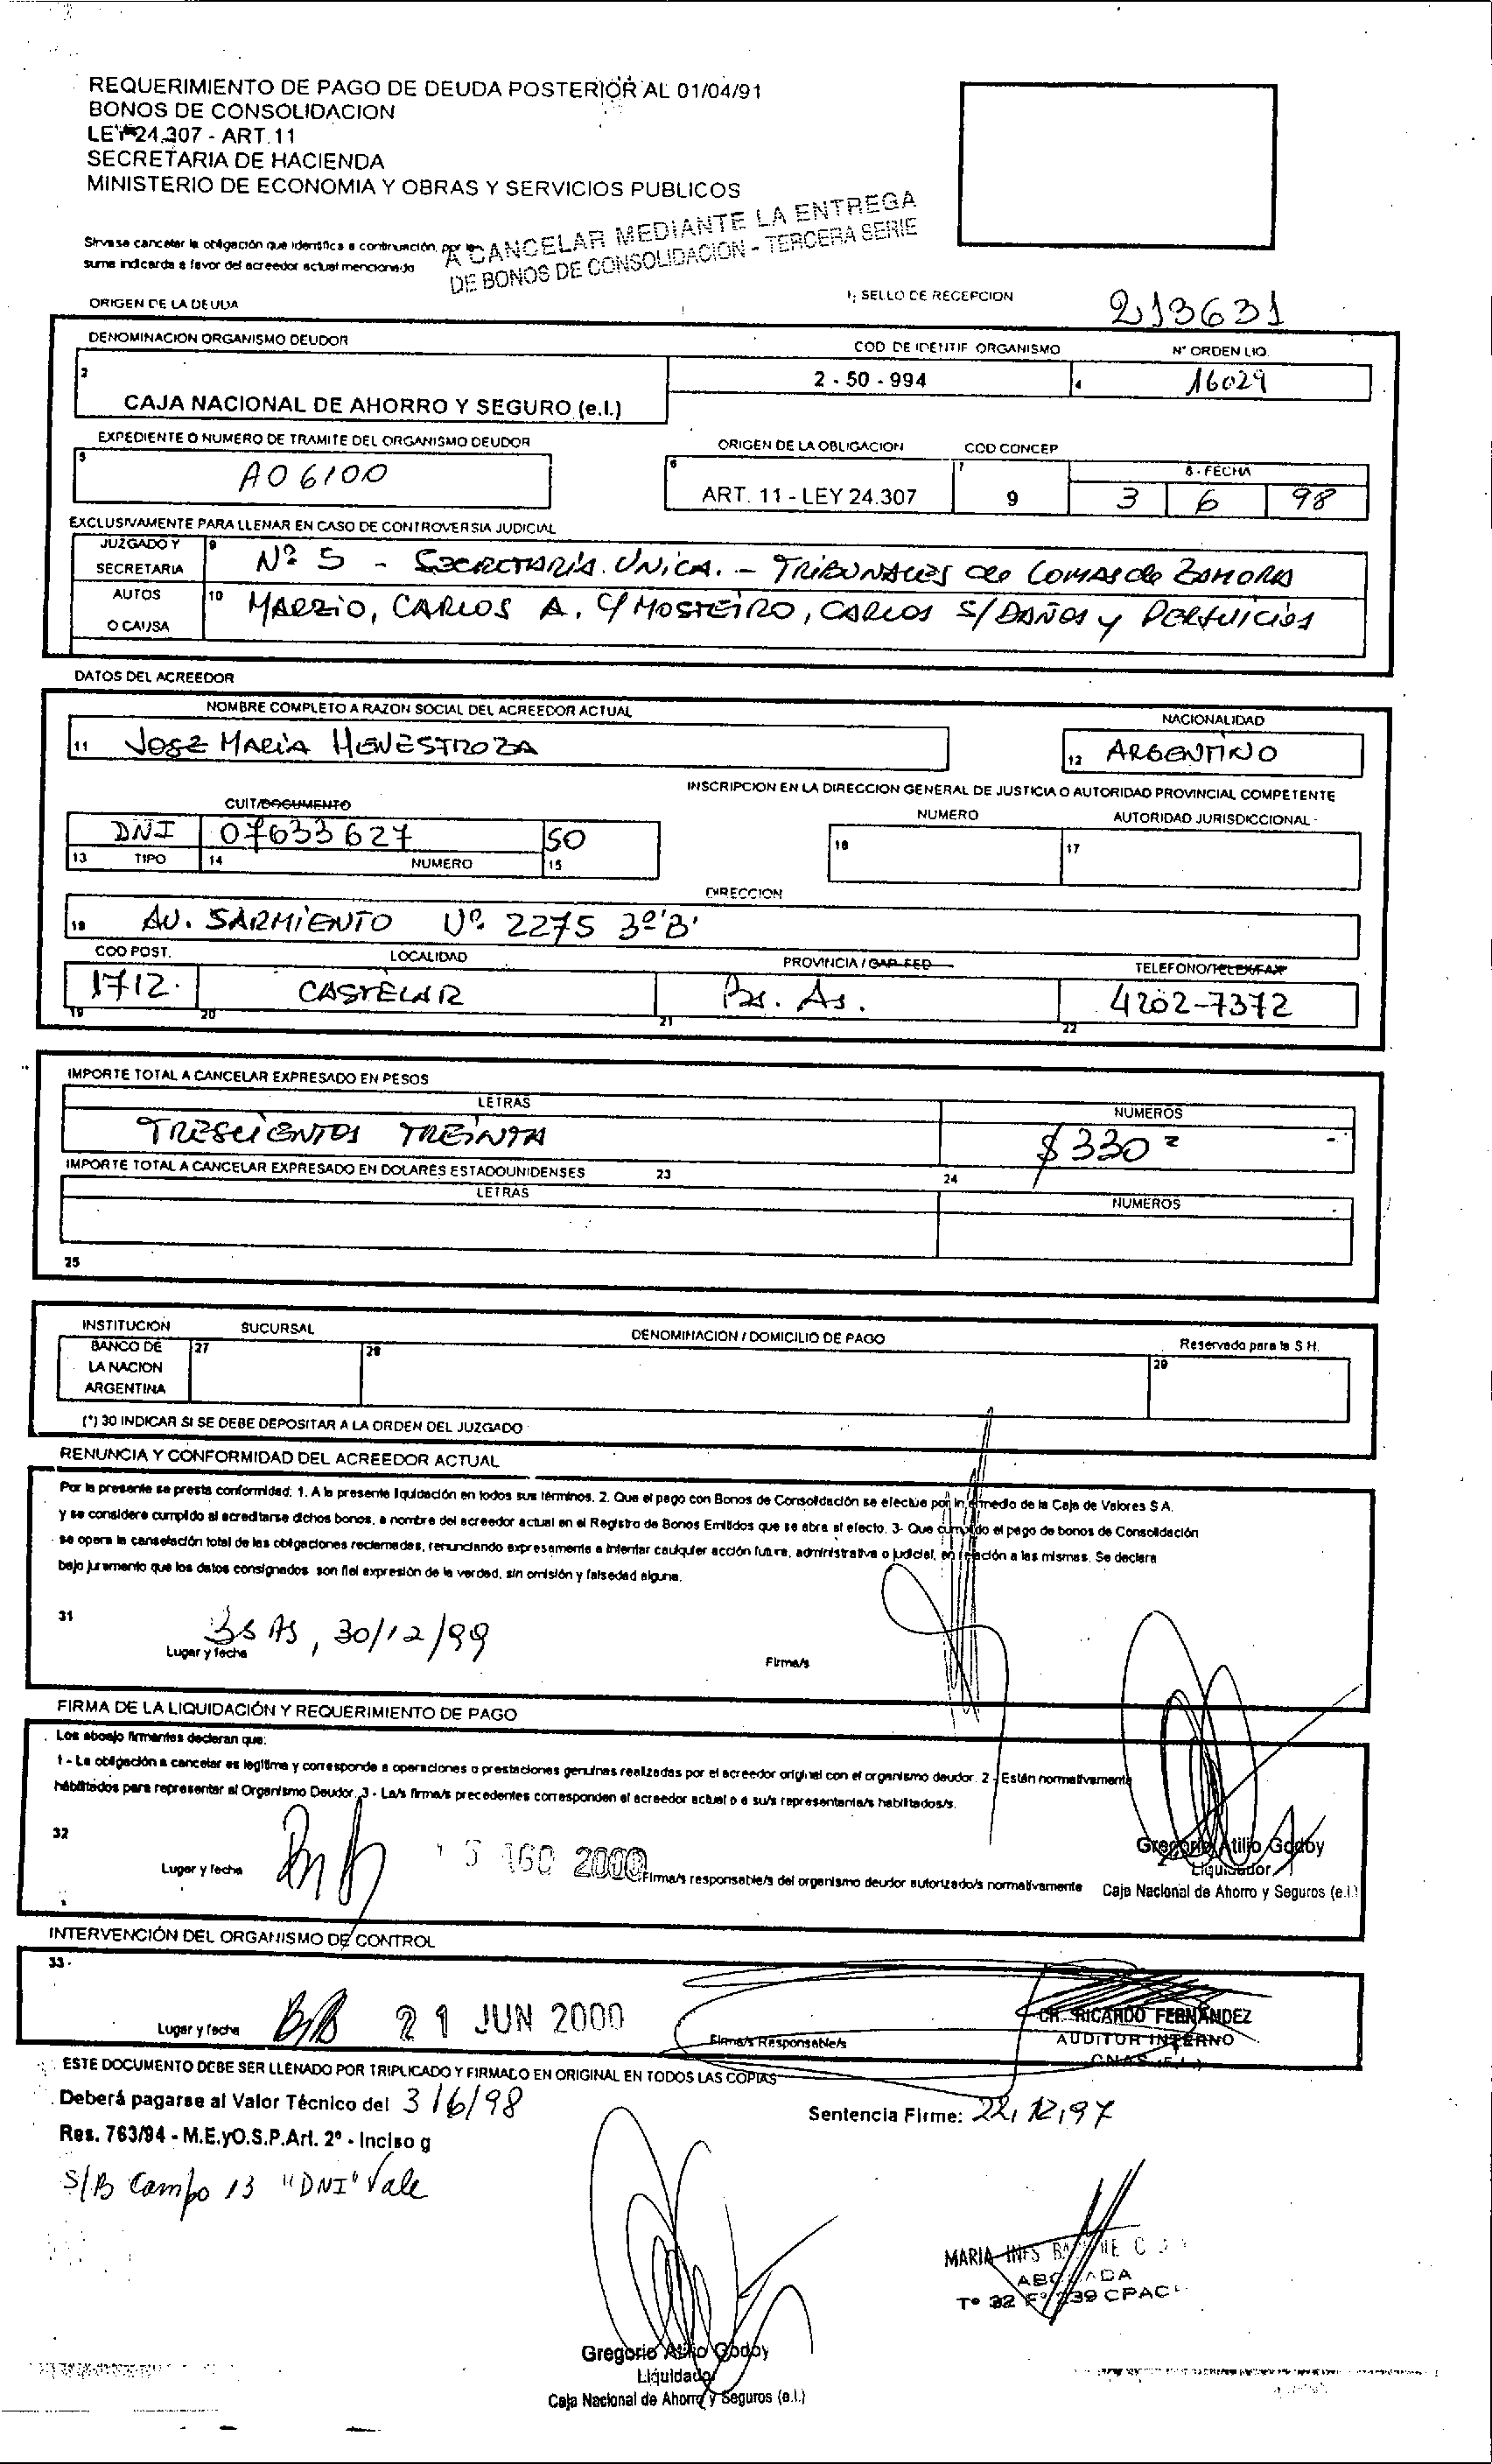 REQUERIMIENTO DE PAGO DE DEUDA POSTERIOR AL 01/04/91
BONOS DE CONSOLIDACION
LEY 24.307 - ART. 11
SECRETARIA DE HACIENDA
MINISTERIO DE ECONOMIA Y OBRAS Y SERVICIOS PUBLICOS
Sirvase cancelar la obligación que identifica a continuación, por las
suma indicarda a favor del acreedor actual mencionado
A CANCELAR MEDIANTE LA ENTREGA
DE BONOS DE CONSOLIDACION - TERCERA SERIE
ORIGEN DE LA DEUDA
1; SELLO DE RECEPCION
213631
DENOMINACION ORGANISMO DEUDOR
COD DE IDENTIF ORGANISMO
N° ORDEN LIQ.
2
CAJA NACIONAL DE AHORRO Y SEGURO (e.l.)
2 - 50 - 994
4
16029
EXPEDIENTE O NUMERO DE TRAMITE DEL ORGANISMO DEUDOR
ORIGEN DE LA OBLIGACION
COD CONCEP
8 - FECHA
5
A06100
6
ART. 11 - LEY 24.307
7
9
3 6 98
EXCLUSIVAMENTE PARA LLENAR EN CASO DE CONTROVERSIA JUDICIAL
JUZGADO Y
SECRETARIA
9
Nº 5 - SECRETARÍA UNICA. - TRIBUNALES de LOMAS de ZAMORA
AUTOS
O CAUSA
10
MARZIO, CARLOS A. C/ MOSTEIRO, CARLOS S/ DAÑOS y PERJUICIOS
DATOS DEL ACREEDOR
NOMBRE COMPLETO A RAZON SOCIAL DEL ACREEDOR ACTUAL
NACIONALIDAD
11
JOSE MARIA HENESTROZA
12
ARGENTINO
INSCRIPCION EN LA DIRECCION GENERAL DE JUSTICIA O AUTORIDAD PROVINCIAL COMPETENTE
CUIT/DOCUMENTO
NUMERO
AUTORIDAD JURISDICCIONAL
DNI 07633627 SO
13 TIPO 14 NUMERO 15
16
17
DIRECCION
18
AV. SARMIENTO Nº 2275 3º 'B'
COD POST.
LOCALIDAD
PROVINCIA / CAP. FED
TELEFONO/TELEX/FAX
1712.
CASTELAR
Bs. As.
4202-7372
19 20 21 22
IMPORTE TOTAL A CANCELAR EXPRESADO EN PESOS
LETRAS
NUMEROS
TRESCIENTOS TREINTA
$ 330 =
IMPORTE TOTAL A CANCELAR EXPRESADO EN DOLARES ESTADOUNIDENSES
23
24
LETRAS
NUMEROS
25
INSTITUCION
SUCURSAL
DENOMINACION / DOMICILIO DE PAGO
Reservado para la S H.
BANCO DE
LA NACION
ARGENTINA
27
28
29
(*) 30 INDICAR SI SE DEBE DEPOSITAR A LA ORDEN DEL JUZGADO
RENUNCIA Y CONFORMIDAD DEL ACREEDOR ACTUAL
Por la presente se presta conformidad: 1. A la presente liquidación en todos sus términos. 2. Que el pago con Bonos de Consolidación se efectúe por intermedio de la Caja de Valores S A.
y se considere cumplido al acreditarse dichos bonos, a nombre del acreedor actual en el Registro de Bonos Emitidos que se abra al efecto. 3- Que cumplido el pago de bonos de Consolidación
se opera la cancelación total de las obligaciones reclamadas, renunciando expresamente a intentar caulquier acción futura, administrativa o judicial, en relación a las mismas. Se declara
bajo juramento que los datos consignados son fiel expresión de la verdad, sin omisión y falsedad alguna.
31
Bs As, 30/12/99
Lugar y fecha
Firma/s
FIRMA DE LA LIQUIDACIÓN Y REQUERIMIENTO DE PAGO
Los abajo firmantes declaran que:
1 - La obligación a cancelar es legítima y corresponde a operaciones o prestaciones genuinas realizadas por el acreedor original con el organismo deudor. 2 - Están normativamente
habilitados para representar al Organismo Deudor. 3 - La/s firma/s precedentes corresponden al acreedor actual o a su/s representante/s habilitados/s.
32
Lugar y fecha
AGO 2000
Firma/s responsable/s del organismo deudor autorizado/s normativamente
Gregorio Atilio Godoy
Liquidador
Caja Nacional de Ahorro y Seguros (e.l.)
INTERVENCIÓN DEL ORGANISMO DE CONTROL
33 -
Lugar y fecha
21 JUN 2000
Firma/s Responsable/s
CR. RICARDO FERNANDEZ
AUDITOR INTERNO
CNAS (E.L.)
ESTE DOCUMENTO DEBE SER LLENADO POR TRIPLICADO Y FIRMADO EN ORIGINAL EN TODOS LAS COPIAS
Deberá pagarse al Valor Técnico del 3/6/98
Sentencia Firme: 22, 12, 97
Res. 763/94 - M.E.yO.S.P.Art. 2º - Inciso g
S/B Campo 13 "DNI" Vale
MARIA INES
ABOGADA
Tº 32 Fº 239 CPAC
Gregorio Atilio Godoy
Liquidador
Caja Nacional de Ahorro y Seguros (e.l.)